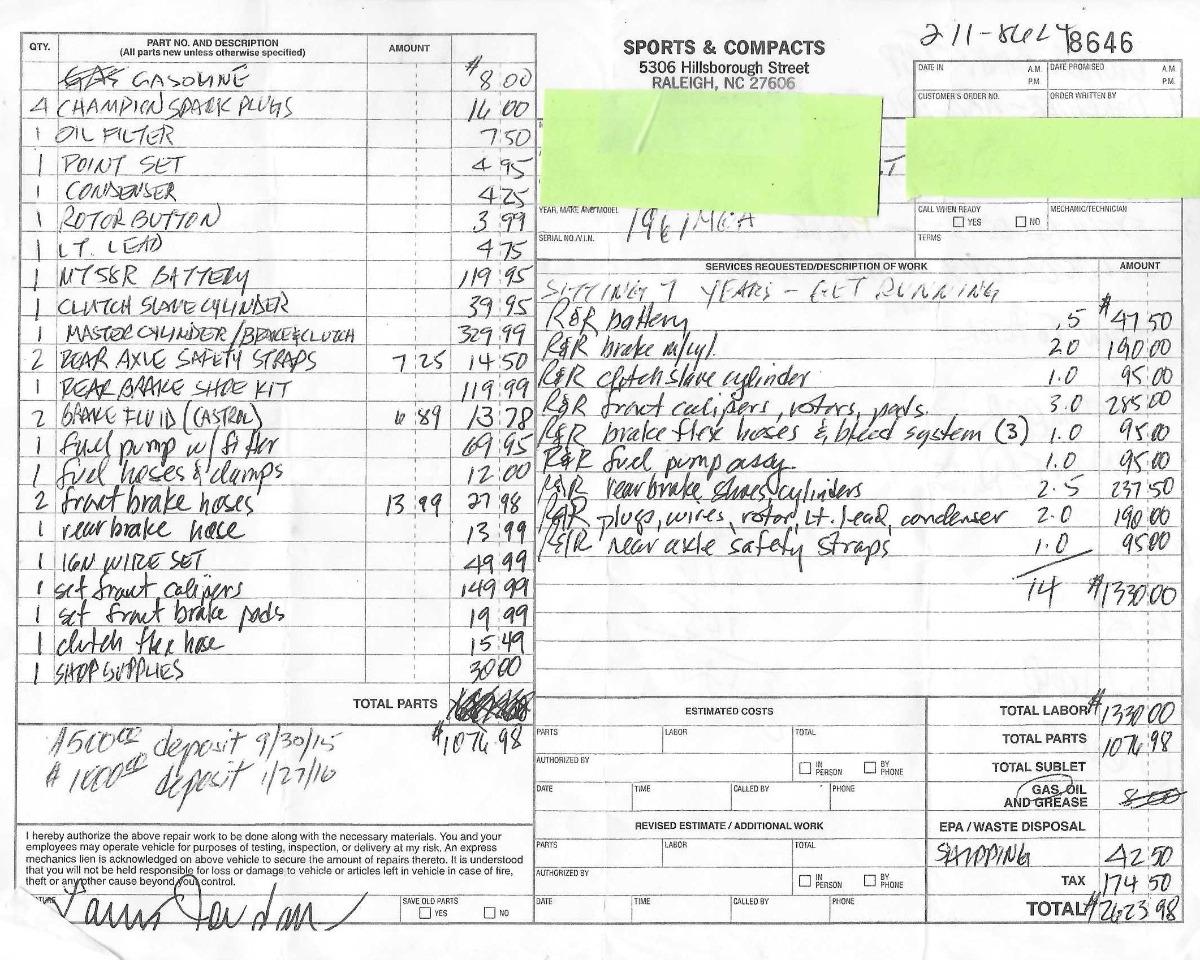 QTY. PART NO. AND DESCRIPTION (All parts new unless otherwise specified) AMOUNT
GASOLINE $8 00
4 CHAMPION SPARK PLUGS 16 00
1 OIL FILTER 7 50
1 POINT SET 4 95
1 CONDENSER 4 25
1 ROTOR BUTTON 3 99
1 LT. LEAD 4 75
1 MT58R BATTERY 119 95
1 CLUTCH SLAVE CYLINDER 39 95
1 MASTER CYLINDER/BRAKE & CLUTCH 329 99
2 REAR AXLE SAFETY STRAPS 7 25 14 50
1 REAR BRAKE SHOE KIT 119 99
2 BRAKE FLUID (CASTROL) 6 89 13 78
1 fuel pump w/ filter 69 95
1 fuel hoses & clamps 12 00
2 front brake hoses 13 99 27 98
1 rear brake hose 13 99
1 IGN WIRE SET 49 99
1 set front calipers 149 99
1 set front brake pads 19 99
1 clutch flex hose 15 49
1 SHOP SUPPLIES 30 00
TOTAL PARTS
$1076 98
$500.00 deposit 9/30/15
$1000.00 deposit 1/27/16
I hereby authorize the above repair work to be done along with the necessary materials. You and your
employees may operate vehicle for purposes of testing, inspection, or delivery at my risk. An express
mechanics lien is acknowledged on above vehicle to secure the amount of repairs thereto. It is understood
that you will not be held responsible for loss or damage to vehicle or articles left in vehicle in case of fire,
theft or any other cause beyond your control.
SAVE OLD PARTS
YES NO
SPORTS & COMPACTS
5306 Hillsborough Street
RALEIGH, NC 27606
8646
DATE IN A.M. P.M. DATE PROMISED A.M. P.M.
CUSTOMER'S ORDER NO. ORDER WRITTEN BY
YEAR, MAKE AND MODEL 1961 MGA
CALL WHEN READY YES NO MECHANIC/TECHNICIAN
SERIAL NO./V.I.N. TERMS
SERVICES REQUESTED/DESCRIPTION OF WORK AMOUNT
SITTING 7 YEARS - GET RUNNING
R&R battery .5 $47 50
R&R brake m/cyl. 2.0 190.00
R&R clutch slave cylinder 1.0 95 00
R&R front calipers, rotors, pads. 3.0 285.00
R&R brake flex hoses & bleed system (3) 1.0 95.00
R&R fuel pump assy. 1.0 95.00
R&R rear brake shoes, cylinders 2.5 237.50
R&R plugs, wires, rotor, Lt. lead, condenser 2.0 190.00
R&R rear axle safety straps 1.0 95.00
14 $1330.00
ESTIMATED COSTS
PARTS LABOR TOTAL
AUTHORIZED BY IN PERSON BY PHONE
DATE TIME CALLED BY PHONE
REVISED ESTIMATE / ADDITIONAL WORK
PARTS LABOR TOTAL
AUTHORIZED BY IN PERSON BY PHONE
DATE TIME CALLED BY PHONE
TOTAL LABOR $1330 00
TOTAL PARTS 1076 98
TOTAL SUBLET
GAS, OIL AND GREASE 8.00
EPA / WASTE DISPOSAL
SHIPPING 42 50
TAX 174 50
TOTAL $2623 98